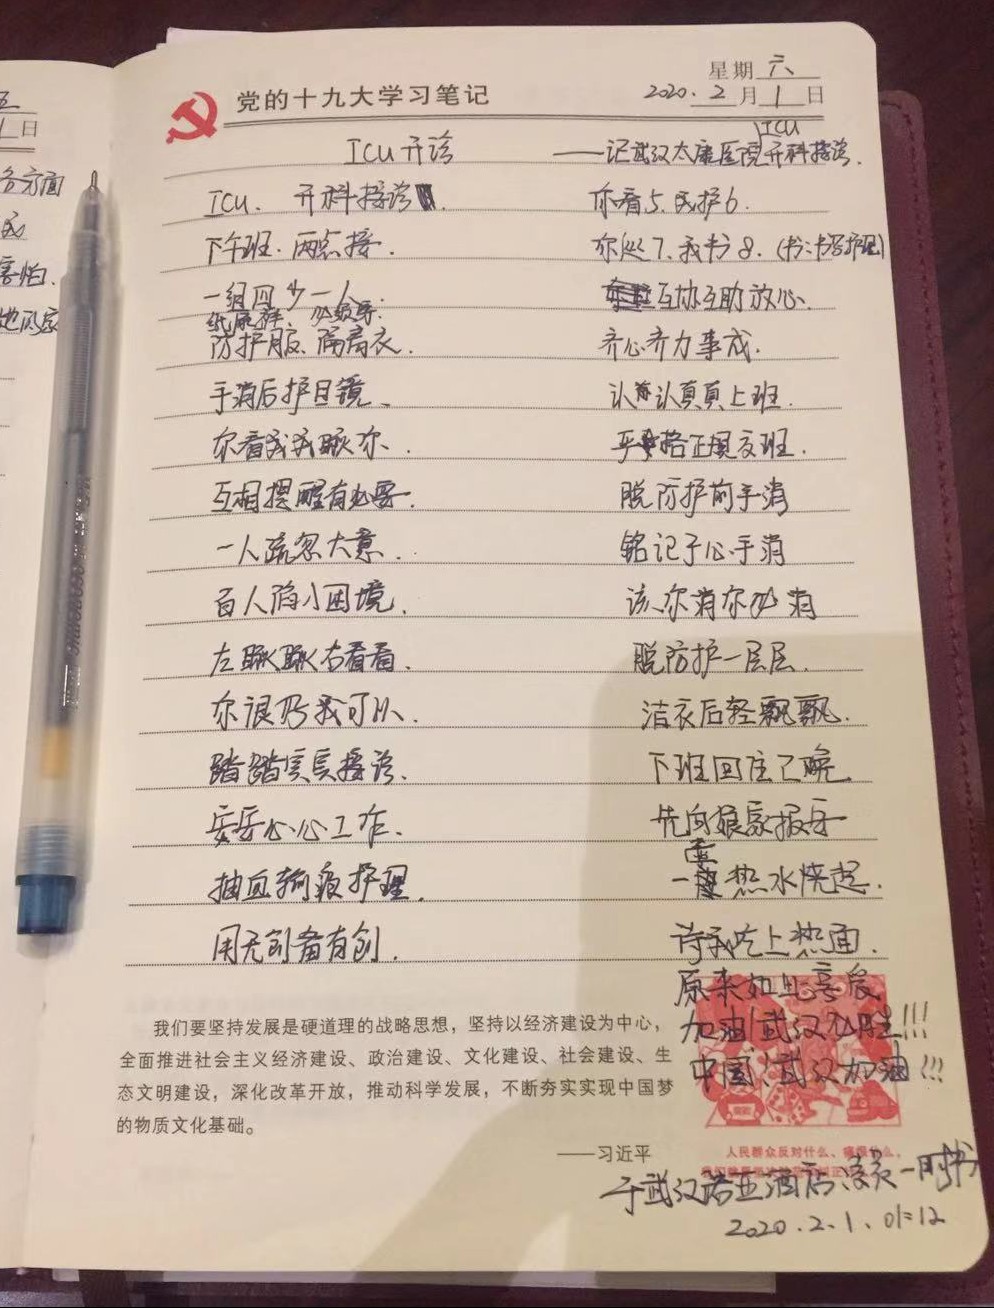 五
1日
各方面
我
害怕.
星期 六
党的十九大学习笔记
2020. 2 月 1 日
ICU 开诊
——记武汉太康医院ICU开科接诊.
ICU. 开科接诊.
下午班. 两点接.
一组四少一人.
纸尿裤、必须穿.
防护服、隔离衣.
手消后护目镜、
你看我我瞅你.
互相提醒有必要.
一人疏忽大意.
百人陷入困境.
左瞅瞅右看看.
你很好我可以.
踏踏实实接诊.
安安心心工作.
抽血输液护理.
用无创备有创.
你看5.我护6.
你处7.我书8.(书:书写护理)
互协互助放心.
齐心齐力事成.
认认真真上班.
严格正规交班.
脱防护前手消
铭记于心手消
该你消你必消
脱防护一层层.
洁衣后轻飘飘.
下班回住已晚
先向娘家报平
一壶热水烧起.
待我吃上热面.
原来如此喜爱
加油!武汉必胜!!!
中国、武汉加油!!!
我们要坚持发展是硬道理的战略思想，坚持以经济建设为中心，
全面推进社会主义经济建设、政治建设、文化建设、社会建设、生
态文明建设，深化改革开放，推动科学发展，不断夯实实现中国梦
的物质文化基础。
——习近平
人民群众反对什么、痛恨什么，
于武汉诺亚酒店、凌晨一时书
2020.2.1、01:12